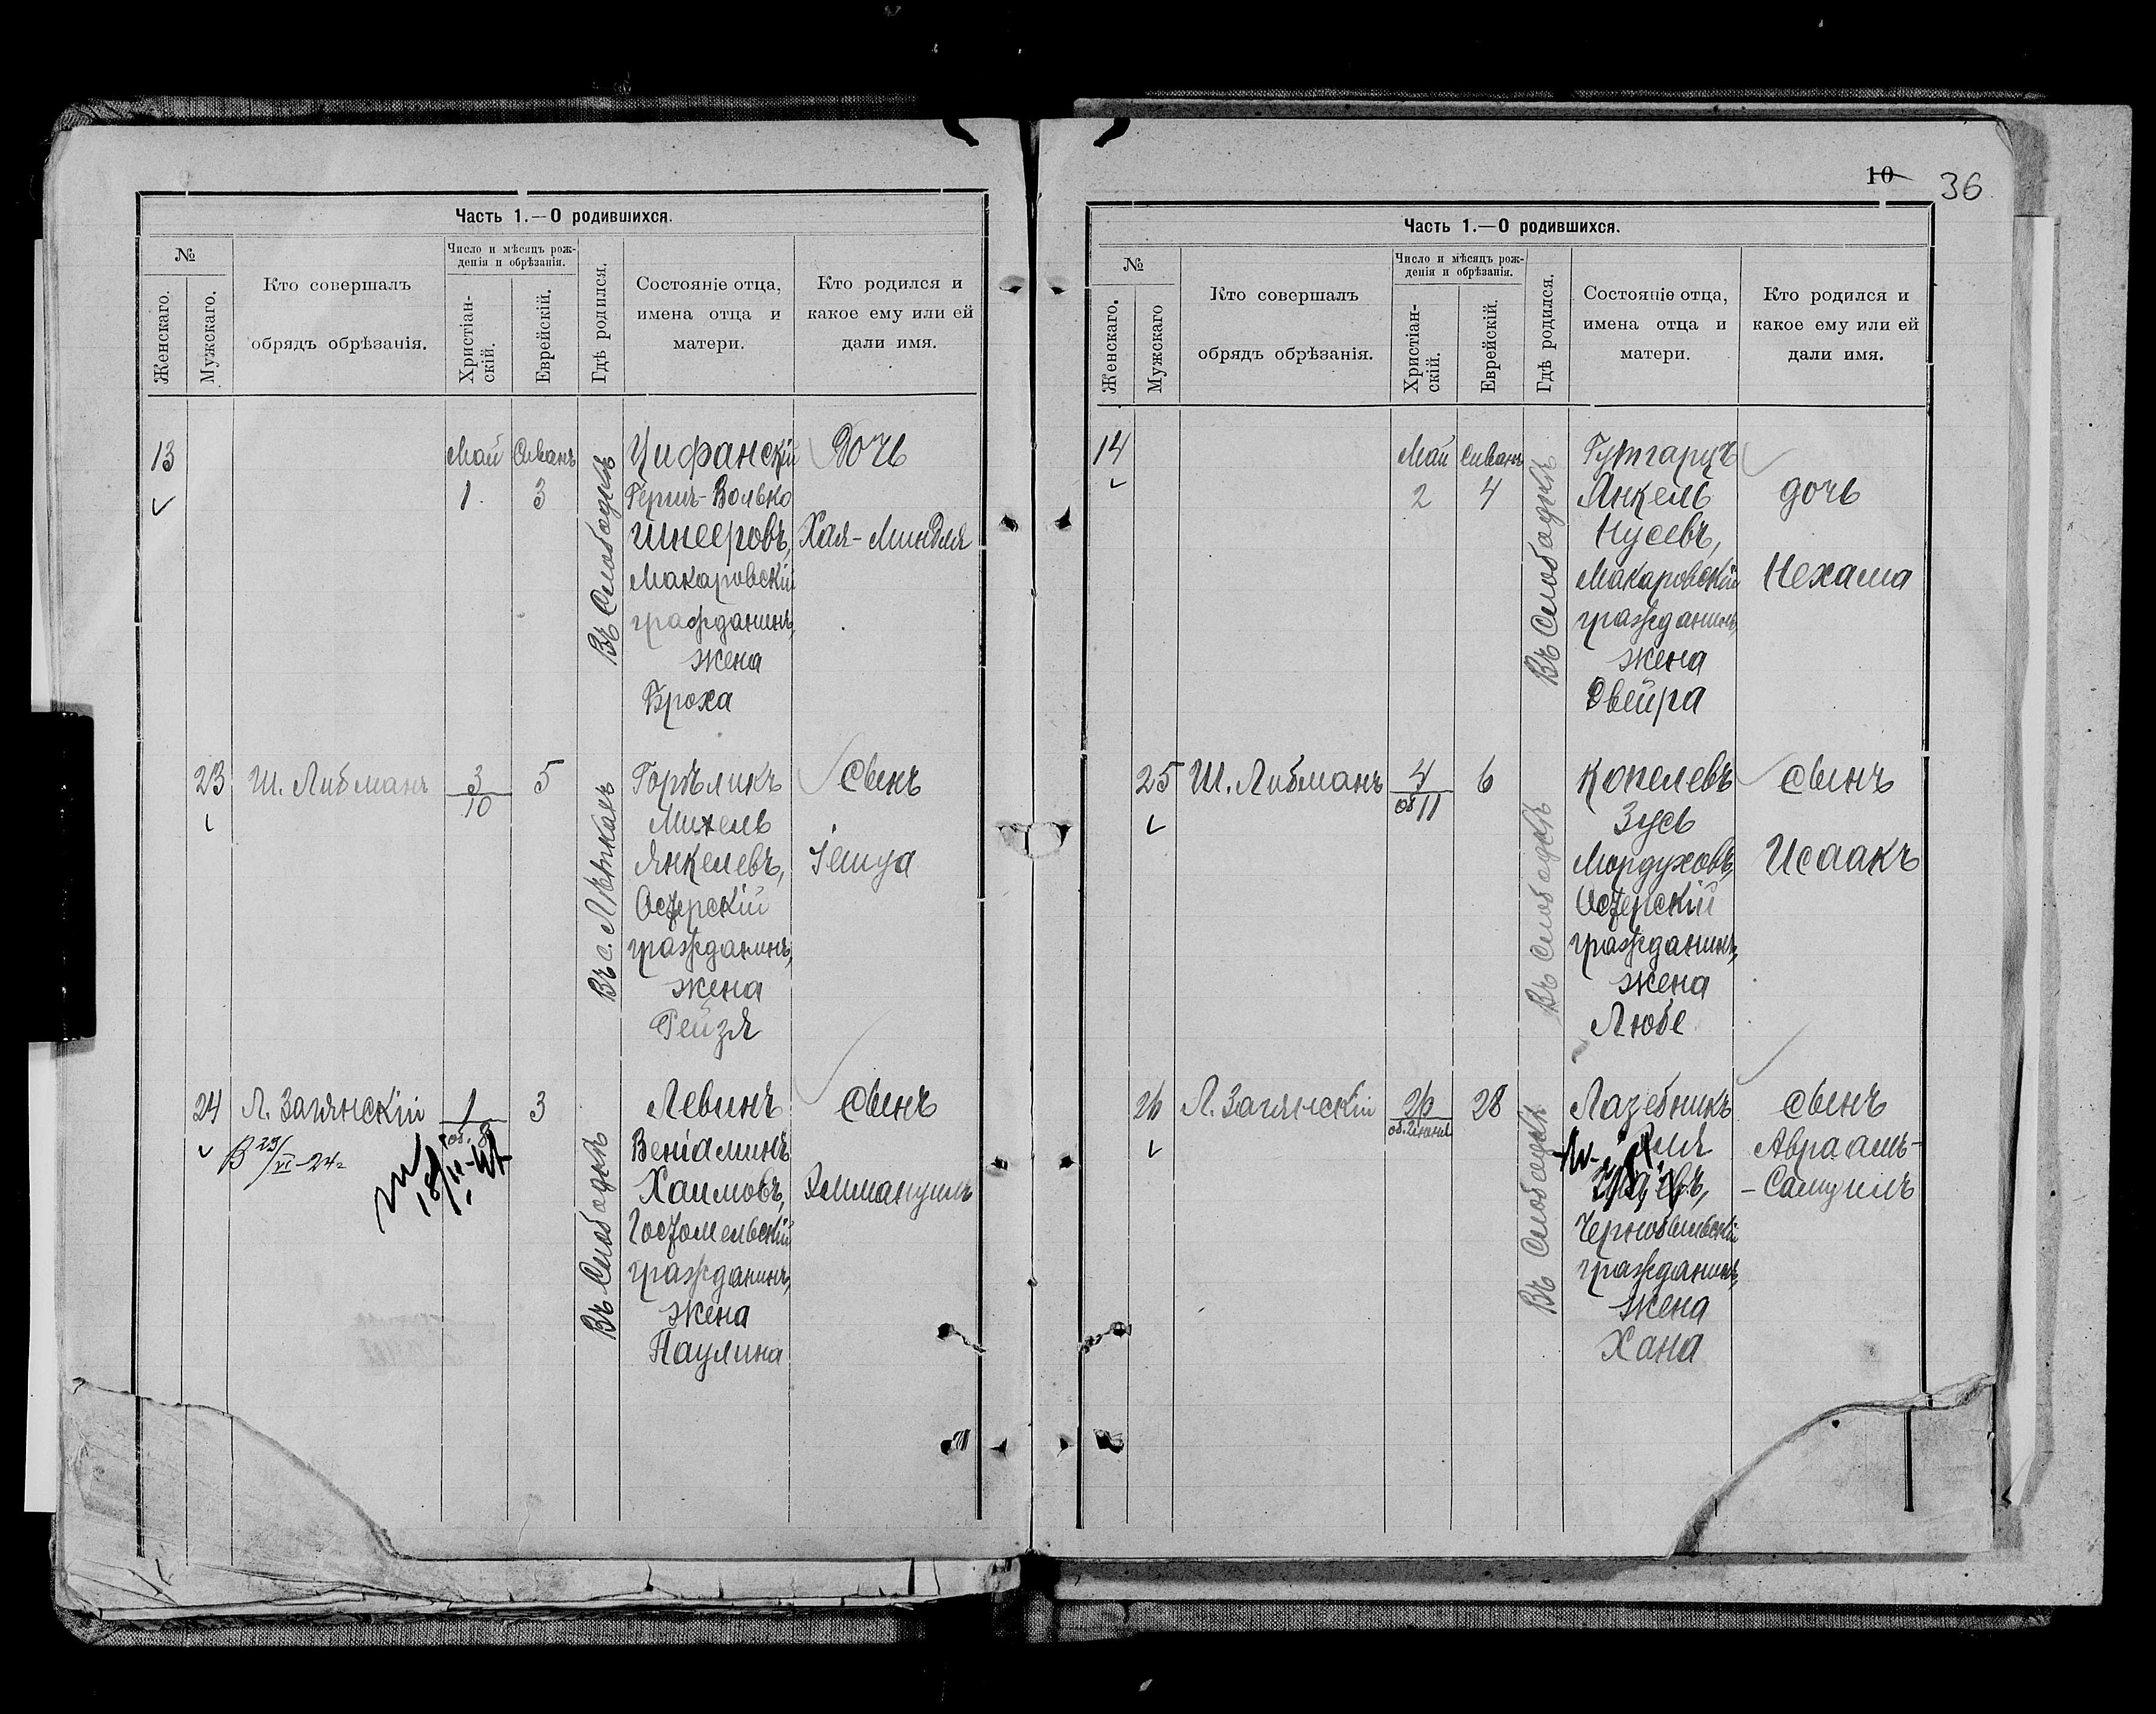 Часть 1.—О родившихся.
№
Женскаго.
Мужскаго.
Кто совершалъ
обрядъ обрѣзанія.
Число и мѣсяцъ рож-
денія и обрѣзанія.
Христіан-
скій.
Еврейскій.
Гдѣ родился.
Состояніе отца,
имена отца и
матери.
Кто родился и
какое ему или ей
дали имя.
13
Май
1
Сиванъ
3
Въ Слободкѣ
Цифанскій
Гершъ-Волько
Шнееровъ,
Макаровскій
гражданинъ,
жена
Броха
Дочь
Хая-Миндля
23
Ш. Либманъ
3
10
5
Въ с.
Горѣликъ
Михель
Янкелевъ,
Остерскій
гражданинъ,
жена
Рейзя
Сынъ
Іешуа
24
Л. Загянскій
В 29/VI-24г
1
об. 8
3
Въ Слободкѣ
Левинъ
Веніаминъ
Хаимовъ,
Гостомельскій
гражданинъ,
жена
Паулина
Сынъ
Эммануилъ
10
36
Часть 1.—О родившихся.
№
Женскаго.
Мужскаго
Кто совершалъ
обрядъ обрѣзанія.
Число и мѣсяцъ рож-
денія и обрѣзанія.
Христіан-
скій.
Еврейскій.
Гдѣ родился.
Состояніе отца,
имена отца и
матери.
Кто родился и
какое ему или ей
дали имя.
14
Май
2
Сиванъ
4
Въ Слободкѣ
Гутгарцъ
Янкель
Нусевъ,
Макаровскій
гражданинъ,
жена
Двейра
дочь
Нехама
25
Ш. Либманъ
4
об 11
6
Въ Слободкѣ
Копелевъ
Зусь
Мордуховъ,
Остерскій
гражданинъ,
жена
Любе
Сынъ
Исаакъ
26
Л. Загянскій
26
об. Іюня
28
Въ Слободкѣ
Лазебникъ
Чернобыльскій
гражданинъ,
жена
Хана
Сынъ
Авраамъ-
-Самуилъ